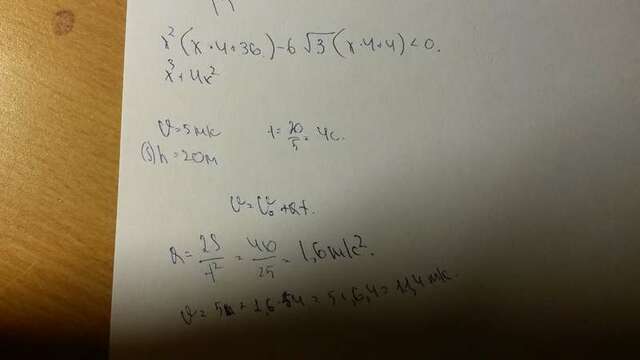 x² (x·4+36)-6√3 (x·4+4)<0.
x³+4x²
v=5м/с t=20/5=4с.
(S)h=20м
v=v₀+at.
a=2S/t²=40/25=1,6м/с².
v=5м+1,6·4=5+6,4=11,4м/с.